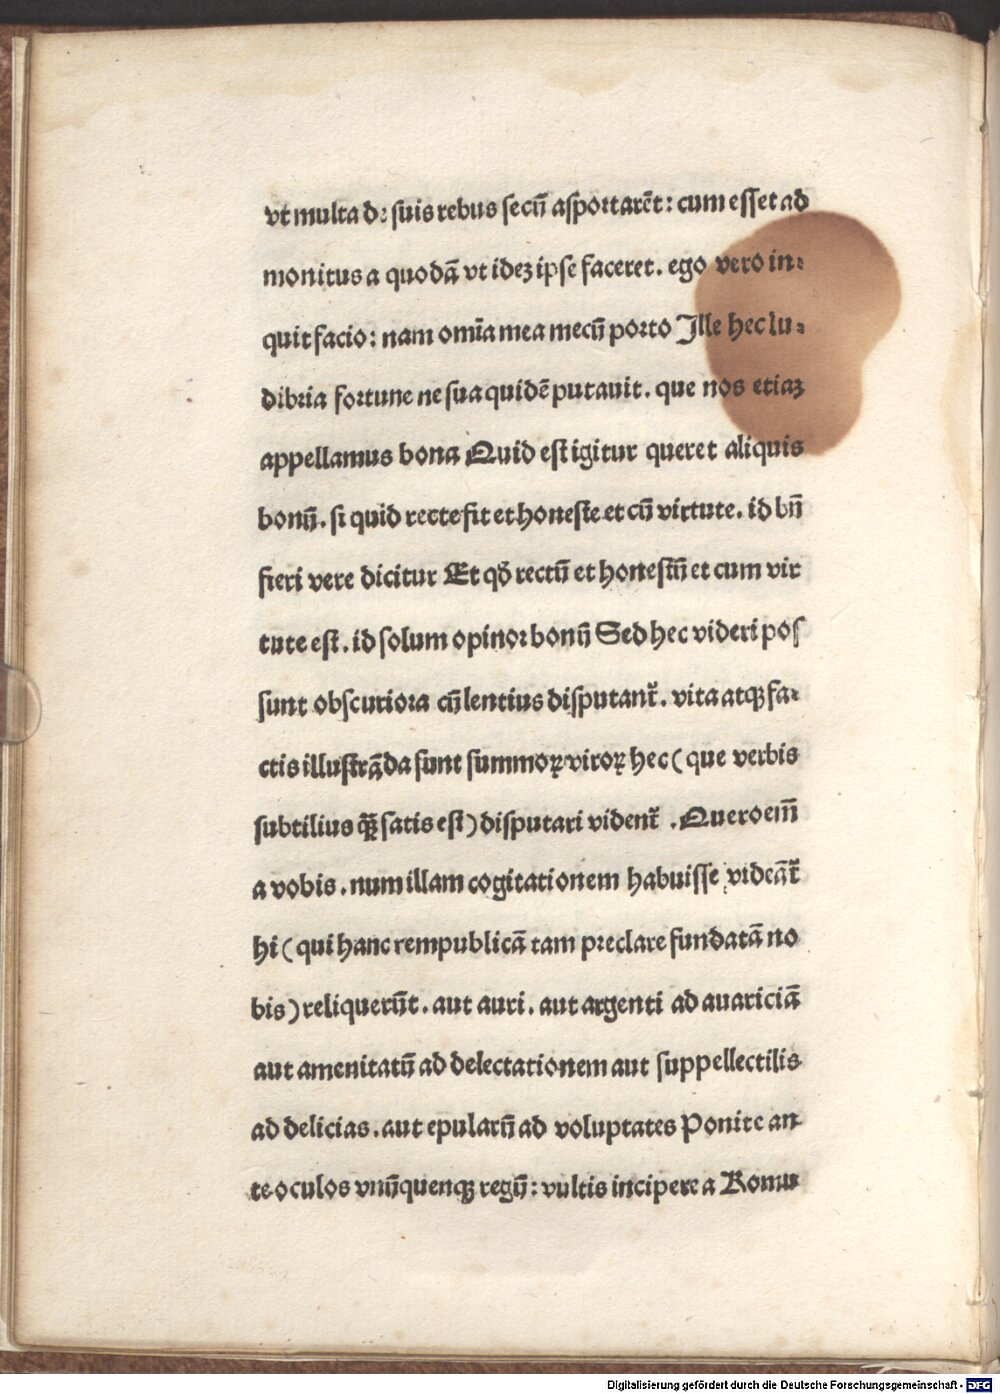 vt multa d: suis rebus secū asportarēt: cum esset ad
monitus a quodā vt idez ipse faceret. ego vero in:
quit facio: nam omīa mea mecū porto Ille hec lu:
dibria fortune ne sua quidē putauit. que nos etiaz
appellamus bona Quid est igitur queret aliquis
bonū. si quid recte fit et honeste et cū virtute. id bn̄
fieri vere dicitur Et qd̄ rectū et honestū et cum vir
tute est. id solum opinor bonū Sed hec videri pos
sunt obscuriora cū lentius disputant̄. vita atqꝫ fa-
ctis illustrāda sunt summoꝝ viroꝝ hec (que verbis
subtilius qꝫ̄ satis est) disputari vident̄ . Quero em̄
a vobis. num illam cogitationem habuisse videāt̄
hi (qui hanc rempublicā tam preclare fundatā no
bis) reliquerūt. aut auri. aut argenti ad auariciā
aut amenitatū ad delectationem aut suppellectilis
ad delicias. aut epularū ad voluptates Ponite an-
te oculos vnūquenqꝫ regū: vultis incipere a Romu
Digitalisierung gefördert durch die Deutsche Forschungsgemeinschaft - DFG